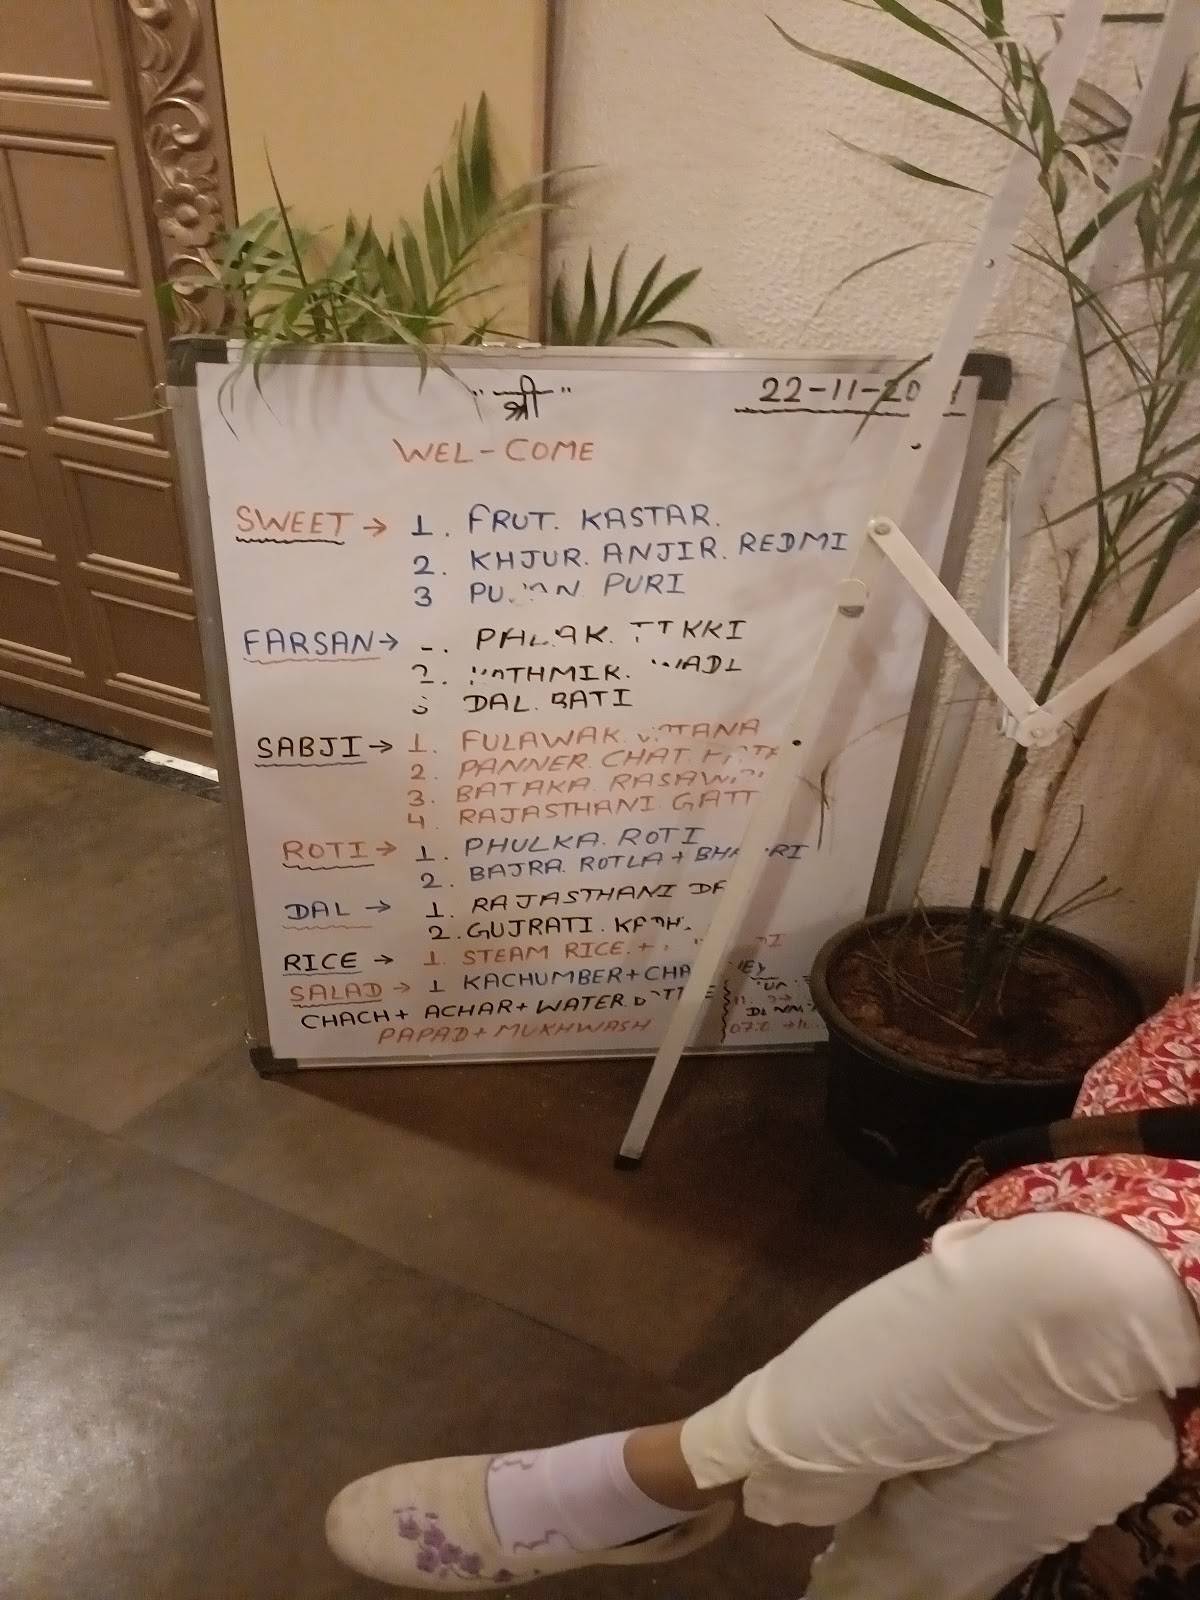 "श्री"
22-11-20
WEL-COME
SWEET → 1. FRUT. KASTAR.
2. KHJUR. ANJIR. REDMI
3 PURI
FARSAN → PALAK. TIKKI
2.
DAL. BATI
SABJI → 1. FULAWAR
2. PANNER. CHAT.
3. BATAKA.
4. RAJASTHANI
ROTI → 1. PHULKA. ROTI
2. BAJRA. ROTLA +
DAL → 1. RAJASTHANI
2. GUJRATI.
RICE → 1. STEAM RICE. +
SALAD → 1 KACHUMBER +
CHACH + ACHAR + WATER.
PAPAD + MUKHWASH